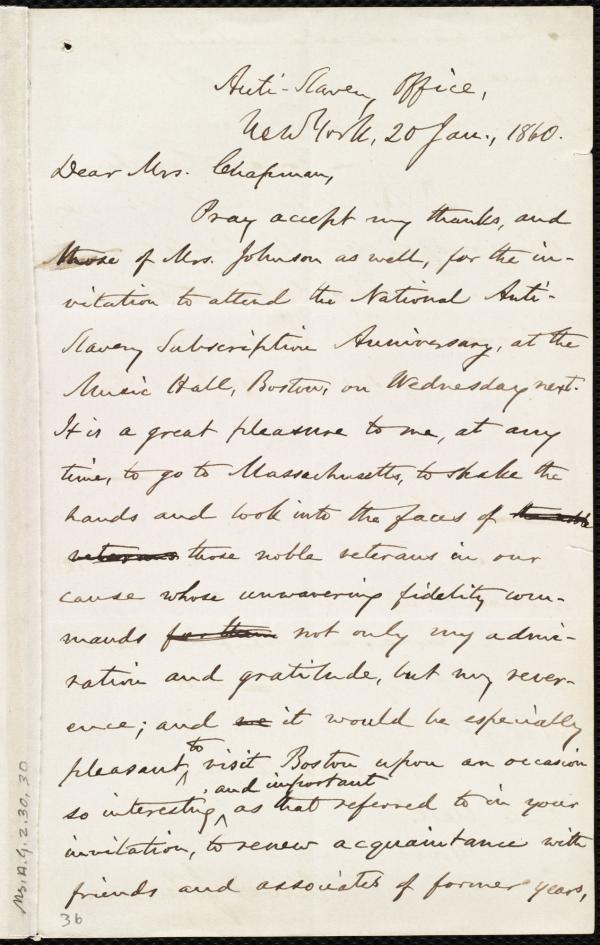 Anti-Slavery Office,
New York, 20 Jan., 1860.
Dear Mrs. Chapman,
Pray accept my thanks, and
those of Mrs. Johnson as well, for the in-
vitation to attend the National Anti-
Slavery Subscription Anniversary, at the
Music Hall, Boston, on Wednesday next.
It is a great pleasure to me, at any
time, to go to Massachusetts, to shake the
hands and look into the faces of the noble
veterans those noble veterans in our
cause whose unwavering fidelity com-
mands for them not only my admi-
ration and gratitude, but my rever-
ence; and we it would be especially
pleasant to visit Boston upon an occasion
so interesting, and important as that referred to in your
invitation, to renew acquaintance with
friends and associates of former years,
36
Ms. A. 9. 2. 30, 30